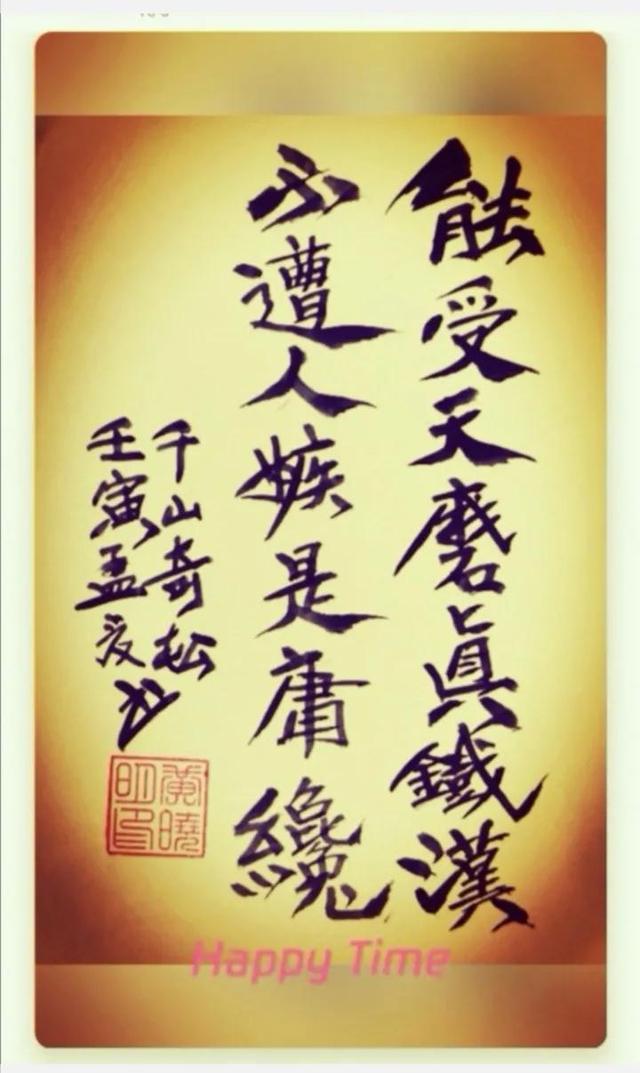 能受天磨真鐵漢
不遭人嫉是庸纔
千山奇松
壬寅孟夏
黃曉明印
Happy Time